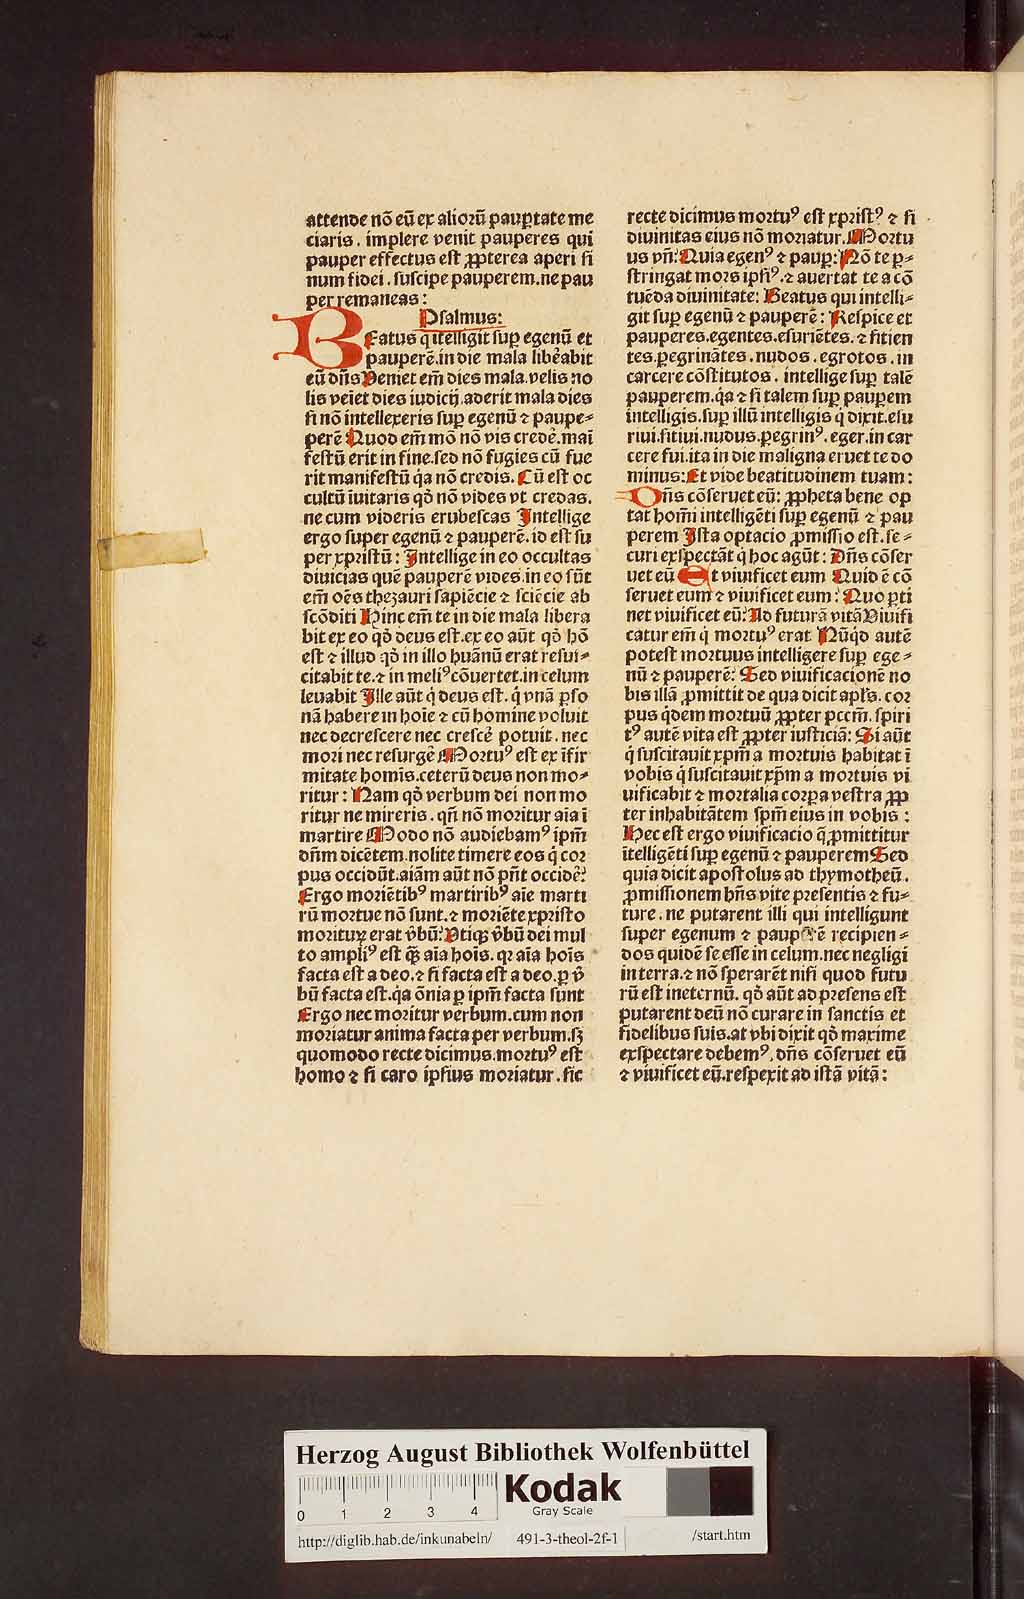 attende nō eū ex aliorū paup̲tate me
ciaris. implere venit pauperes qui
pauper effectus est ꝓpterea aperi si
num fidei. suscipe pauperem.ne pau
per remaneas:
Psalmus:
BEatus q̇ ītelligit sup̲ egenū et
pauperē.in die mala libẻabit
eū dn̄s Veniet em̄ dies mala.velis no
lis veīet dies iudicij.aderit mala dies
si nō intellexeris sup̲ egenū ⁊ paupe⸗
perē Quod em̄ mō nō vis credẻ.maī
festū erit in fine.sed nō fugies cū fue
rit manifestū q̇a nō credis. Cū est oc
cultū īuitaris qđ nō vides vt credas.
ne cum videris erubescas Intellige
ergo super egenū ⁊ pauperē. id est su
per xpristū: Intellige in eo occultas
diuicias quē pauperē vides.in eo sūt
em̄ oēs thezauri sapiēcie ⁊ sciēcie ab
scōditi Hinc em̄ te in die mala libera
bit ex eo qđ deus est.ex eo aūt qđ hō
est ⁊ illud qđ in illo huānū erat resui⸗
citabit te.⁊ in meliꝰ cōuertet.in celum
leuabit Ille aūt q̇ deus est. q̇ vnā p̲so
nā habere in hoīe ⁊ cū homine voluit
nec decrescere nec crescẻ potuit. nec
mori nec resurgẻ Mortuꝰ est ex īfir
mitate homīs.ceterū deus non mo⸗
ritur: Nam qđ verbum dei non mo
ritur ne mireris. qn̄ nō moritur aīa ī
martire Modo nō audiebamꝰ ip̄m
dn̄m dicētem.nolite timere eos q̇ cor
pus occidūt.aīam aūt nō pn̄t occidẻ?
Ergo moriētibꝰ martiribꝰ aīe marti
rū mortue nō sunt.⁊ moriēte xpristo
moriturꝫ erat v̄bū? Vtiqꝫ v̄bū dei mul
to ampliꝰ est qͣꝫ aīa hoīs. qꝛ aīa hoīs
facta est a deo.⁊ si facta est a deo.p̲ v̄
bū facta est.q̇a ōnia p̲ ip̄m facta sunt
Ergo nec moritur verbum.cum non
moriatur anima facta per verbum.sꝫ
quomodo recte dicimus.mortuꝰ est
homo ⁊ si caro ipsius moriatur. sic
recte dicimus mortuꝰ est xpristꝰ ⁊ si
diuinitas eius nō moriatur. Mortu
us vn̄? Quia egenꝰ ⁊ paup̲: Nō te p̲⸗
stringat mors ipsiꝰ.⁊ auertat te a cō
tuēda diuinitate: Beatus qui intelli⸗
git sup̲ egenū ⁊ pauperē: Respice et
pauperes.egentes.esuriētes. ⁊ sitien
tes.p̲egrinātes. nudos. egrotos. in
carcere cōstitutos. intellige sup̲ talē
pauperem.q̇a ⁊ si talem sup̲ paup̲em
intelligis.sup̲ illū intelligis q̇ dixit.esu
riui.sitiui.nudus.p̲egrinꝰ. eger.in car
cere fui.ita in die maligna eruet te do
minus: Et vide beatitudinem tuam:
Dn̄s cōseruet eū: ꝓpheta bene op
tat hom̄i intelligēti sup̲ egenū ⁊ pau
perem Ista optacio ꝓmissio est.se⸗
curi exspectāt q̇ hoc agūt: Dn̄s cōser
uet eū Et viuificet eum Quid ē cō
seruet eum ⁊ viuificet eum? Quo p̲ti
net viuificet eū? Ad futurā vitā Viuifi
catur em̄ q̇ mortuꝰ erat Nūq̇d autē
potest mortuus intelligere sup̲ ege⸗
nū ⁊ pauperē? Sed viuificacionē no
bis illā ꝓmittit de qua dicit apl̄s. cor
pus q̇dem mortuū ꝓpter pcc̄m. spiri
tꝰ autē vita est ꝓpter iusticiā: Si aūt
q̇ suscitauit xp̄m a mortuis habitat ī
vobis q̇ suscitauit xp̄m a mortuis vi
uificabit ⁊ mortalia corp̲a vestra ꝓp
ter inhabitātem sp̄m eius in vobis:
Hec est ergo viuificacio q̄ ꝓmittitur
ītelligēti sup̲ egenū ⁊ pauperem Sed
quia dicit apostolus ad thymotheū.
ꝓmissionem hn̄s vite presentis ⁊ fu⸗
ture. ne putarent illi qui intelligunt
super egenum ⁊ pauperē recipien⸗
dos quidē se esse in celum.nec negligi
in terra.⁊ nō sperarēt nisi quod futu
rū est ineternū. qđ aūt ad presens est
putarent deū nō curare in sanctis et
fidelibus suis.at vbi dixit qđ maxime
exspectare debemꝰ. dn̄s cōseruet eū
⁊ viuificet eū.respexit ad istā vitā:
Herzog August Bibliothek Wolfenbüttel
0 1 2 3 4
Kodak
Gray Scale
http://diglib.hab.de/inkunabeln/ 491-3-theol-2f-1 /start.htm